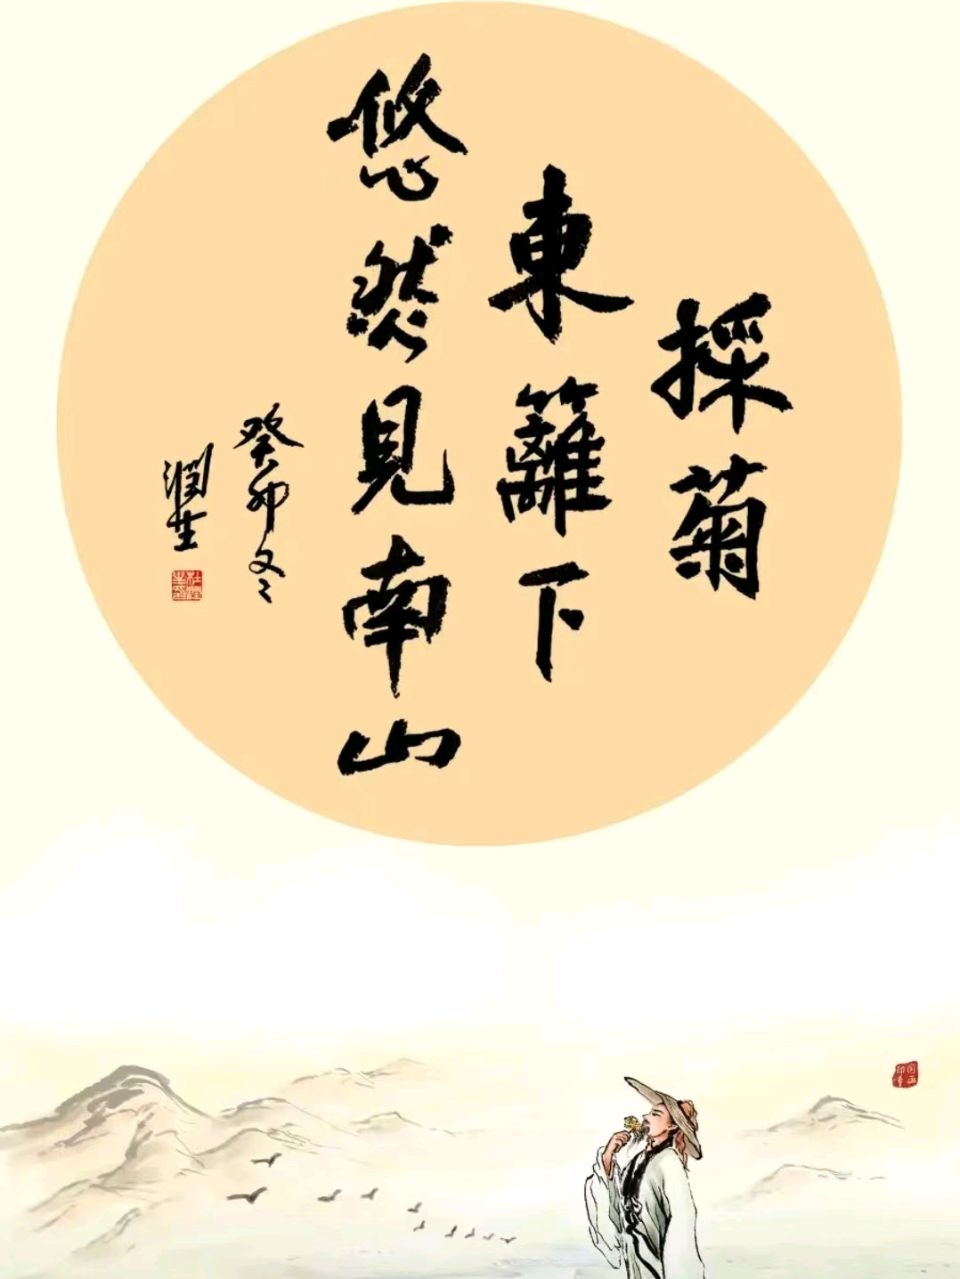 採菊
東籬下
悠然見南山
癸卯冬
潤生